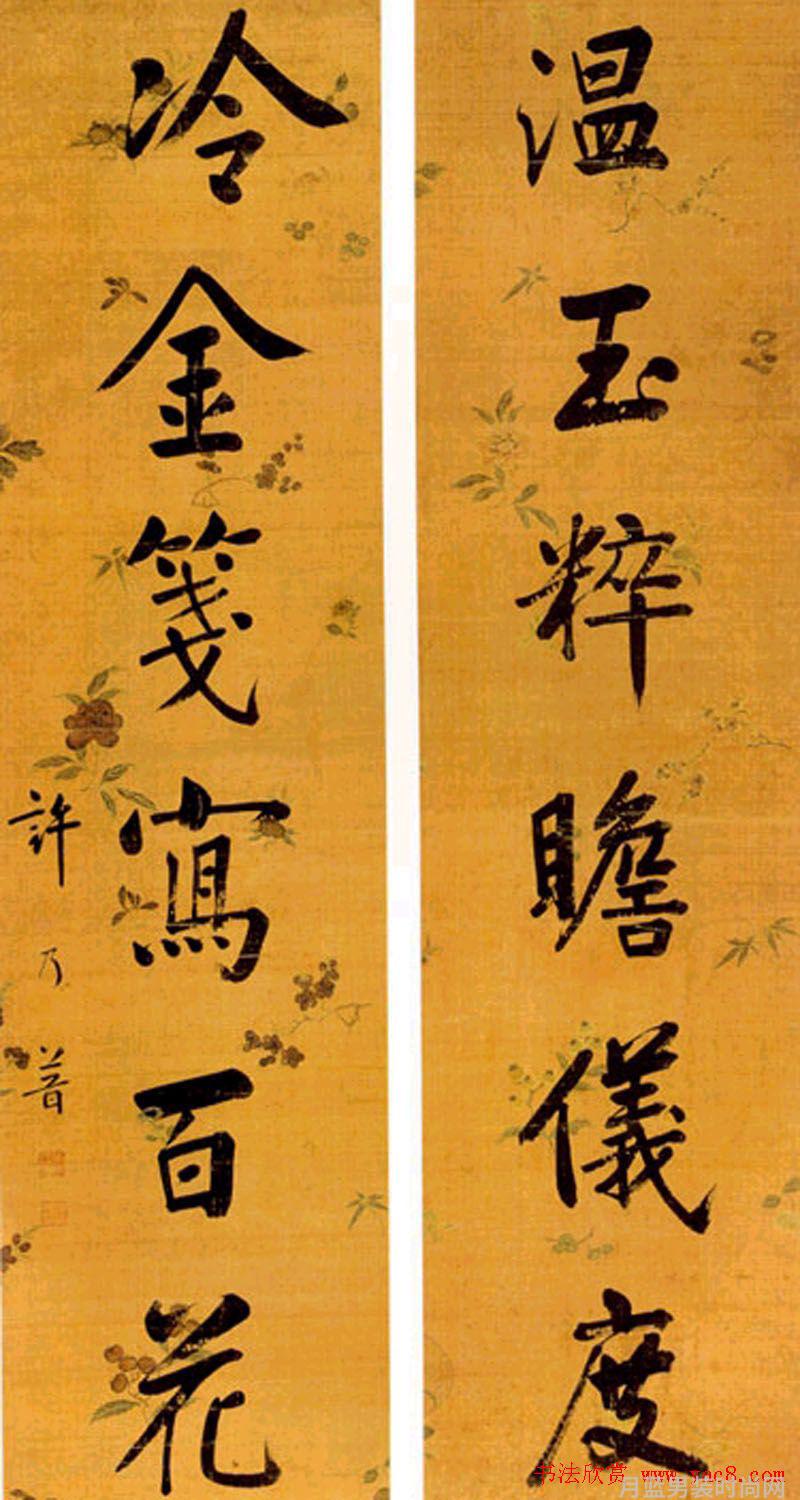 温玉粹瞻儀度
冷金箋寫百花
許乃普
书法欣赏 www.yac8.com
月蓝男装时尚网